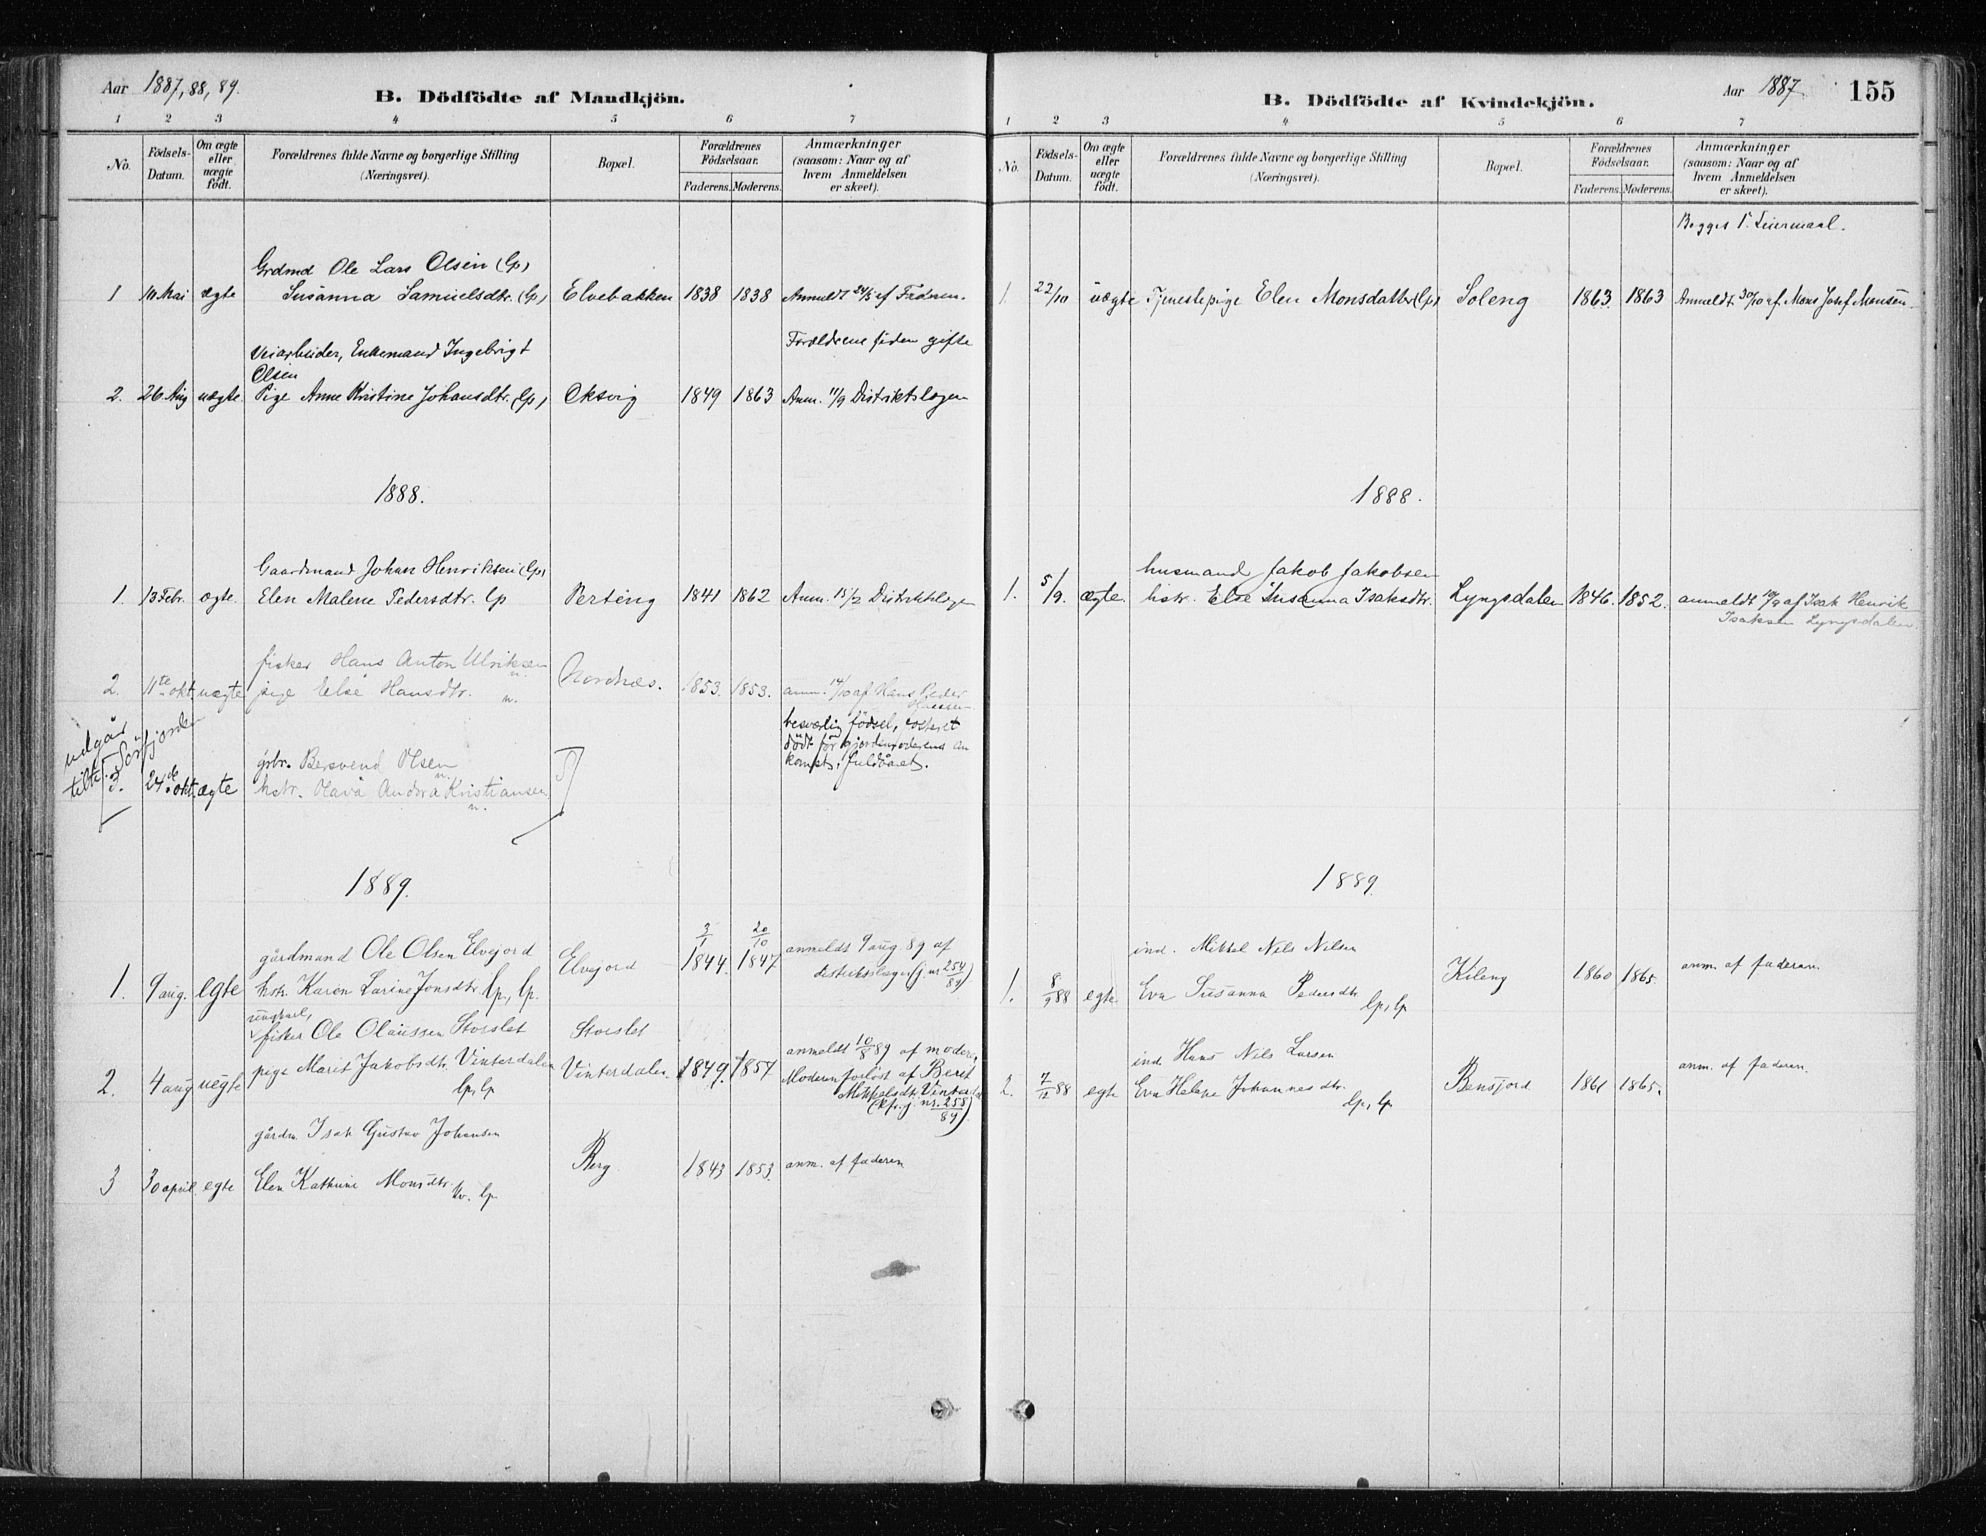 Aar 1887, 88, 89.
B. Dödfödte af Mandkjön.
1 2 3 4 5 6 7
No. Födsels-Datum. Om ægte eller uægte födt. Forældrenes fulde Navne og borgerlige Stilling (Næringsvei). Bopæl. Forældrenes Födselsaar. Faderens. Moderens. Anmærkninger (saasom: Naar og af hvem Anmeldelsen er skeet).
Grdmd Ole Lars Olsen (lp)
1 10 Mai ægte Susanna Samuelsdtr. (lp) Elvebakken 1838 1838 Anmeldt 24/5 af Faderen.
Veiarbeider, Enkemand Ingebrigt Forældrene siden gifte
Olsen
2. 26 Aug uægte Pige Anne Kristine Johansdtr. (lp) Oksvig 1849 1863 Anm. 11/9 Distriktslægen
1888.
Gaardmand Johan Henriksen (lp)
1. 13 Febr. ægte. Elen Malene Pedersdtr. lp Perteng 1841 1862 Anm. 15/2 Distriktslægen
fisker Hans Anton Ulriksen n.
2. 11te okt. uægte pige Else Hansdtr. n. Nordnæs. 1853. 1853. anm. 14/10 af Hans Peder
Hansen
udgår besværlig födsel, fosteret
tilh. Sörfjorden dödt för gjordemoderens an
grbr. Bersvend Olsen n. komst, fuldbåret.
3. 24de okt. ægte hstr. Olava Andora Kristiansen n.
1889.
3/1 20/10
gårdmand Ole Olsen Elvejord Elvejord 1844 1847 anmeldt 9 aug. 89 af
distriktslægen (j. nr 254/89)
1. 9 aug. egte hstr. Karen Larine Jonsdtr. lp, lp.
ungkarl,
fisker Ole Olaussen Storslet Storslet
pige Marit Jakobsdtr. Vinterdalen Vinterdalen 1849. 1857 anmeldt 10/8 89 af moderen,
2. 4 aug uegte lp, lp Moderen forløst af Berit
Mikkelsdtr. Vinterdal
(kfr. j. nr. 258/89)
gårdm. Isak Gustav Johansen
Berg. 1843 1853 anm. af faderen
3 30 april egte Elen Kathrine Monsdtr. kv. lp
B. Dödfödte af Kvindekjön.
Aar 1887. 155
1 2 3 4 5 6 7
No. Födsels-Datum. Om ægte eller uægte födt. Forældrenes fulde Navne og borgerlige Stilling (Næringsvei). Bopæl. Forældrenes Födselsaar. Faderens. Moderens. Anmærkninger (saasom: Naar og af hvem Anmeldelsen er skeet).
Begges 1ste Leiermaal.
1. 22/10 uægte Tjenestepige Elen Monsdatter (lp) Soleng 1863 1863 Anmeldt 30/10 af Mons Josef Monsen
1888.
husmand Jakob Jakobsen
1. 5/9. ægte. hstr. Else Susanna Isaksdtr. Lyngsdalen 1846. 1852. anmeldt 10/9 af Isak Henrik
Isaksen Lyngsdalen.
1889
ind. Mikkel Nils Nilsen
Kileng 1860 1865. anm. af faderen.
1. 8/9 88 egte. Eva Susanna Pedersdtr. lp, lp
ind. Hans Nils Larsen anm. af faderen.
2. 7/12 88 egte Eva Helene Johannesdtr. lp, lp Bensjord 1861 1865.